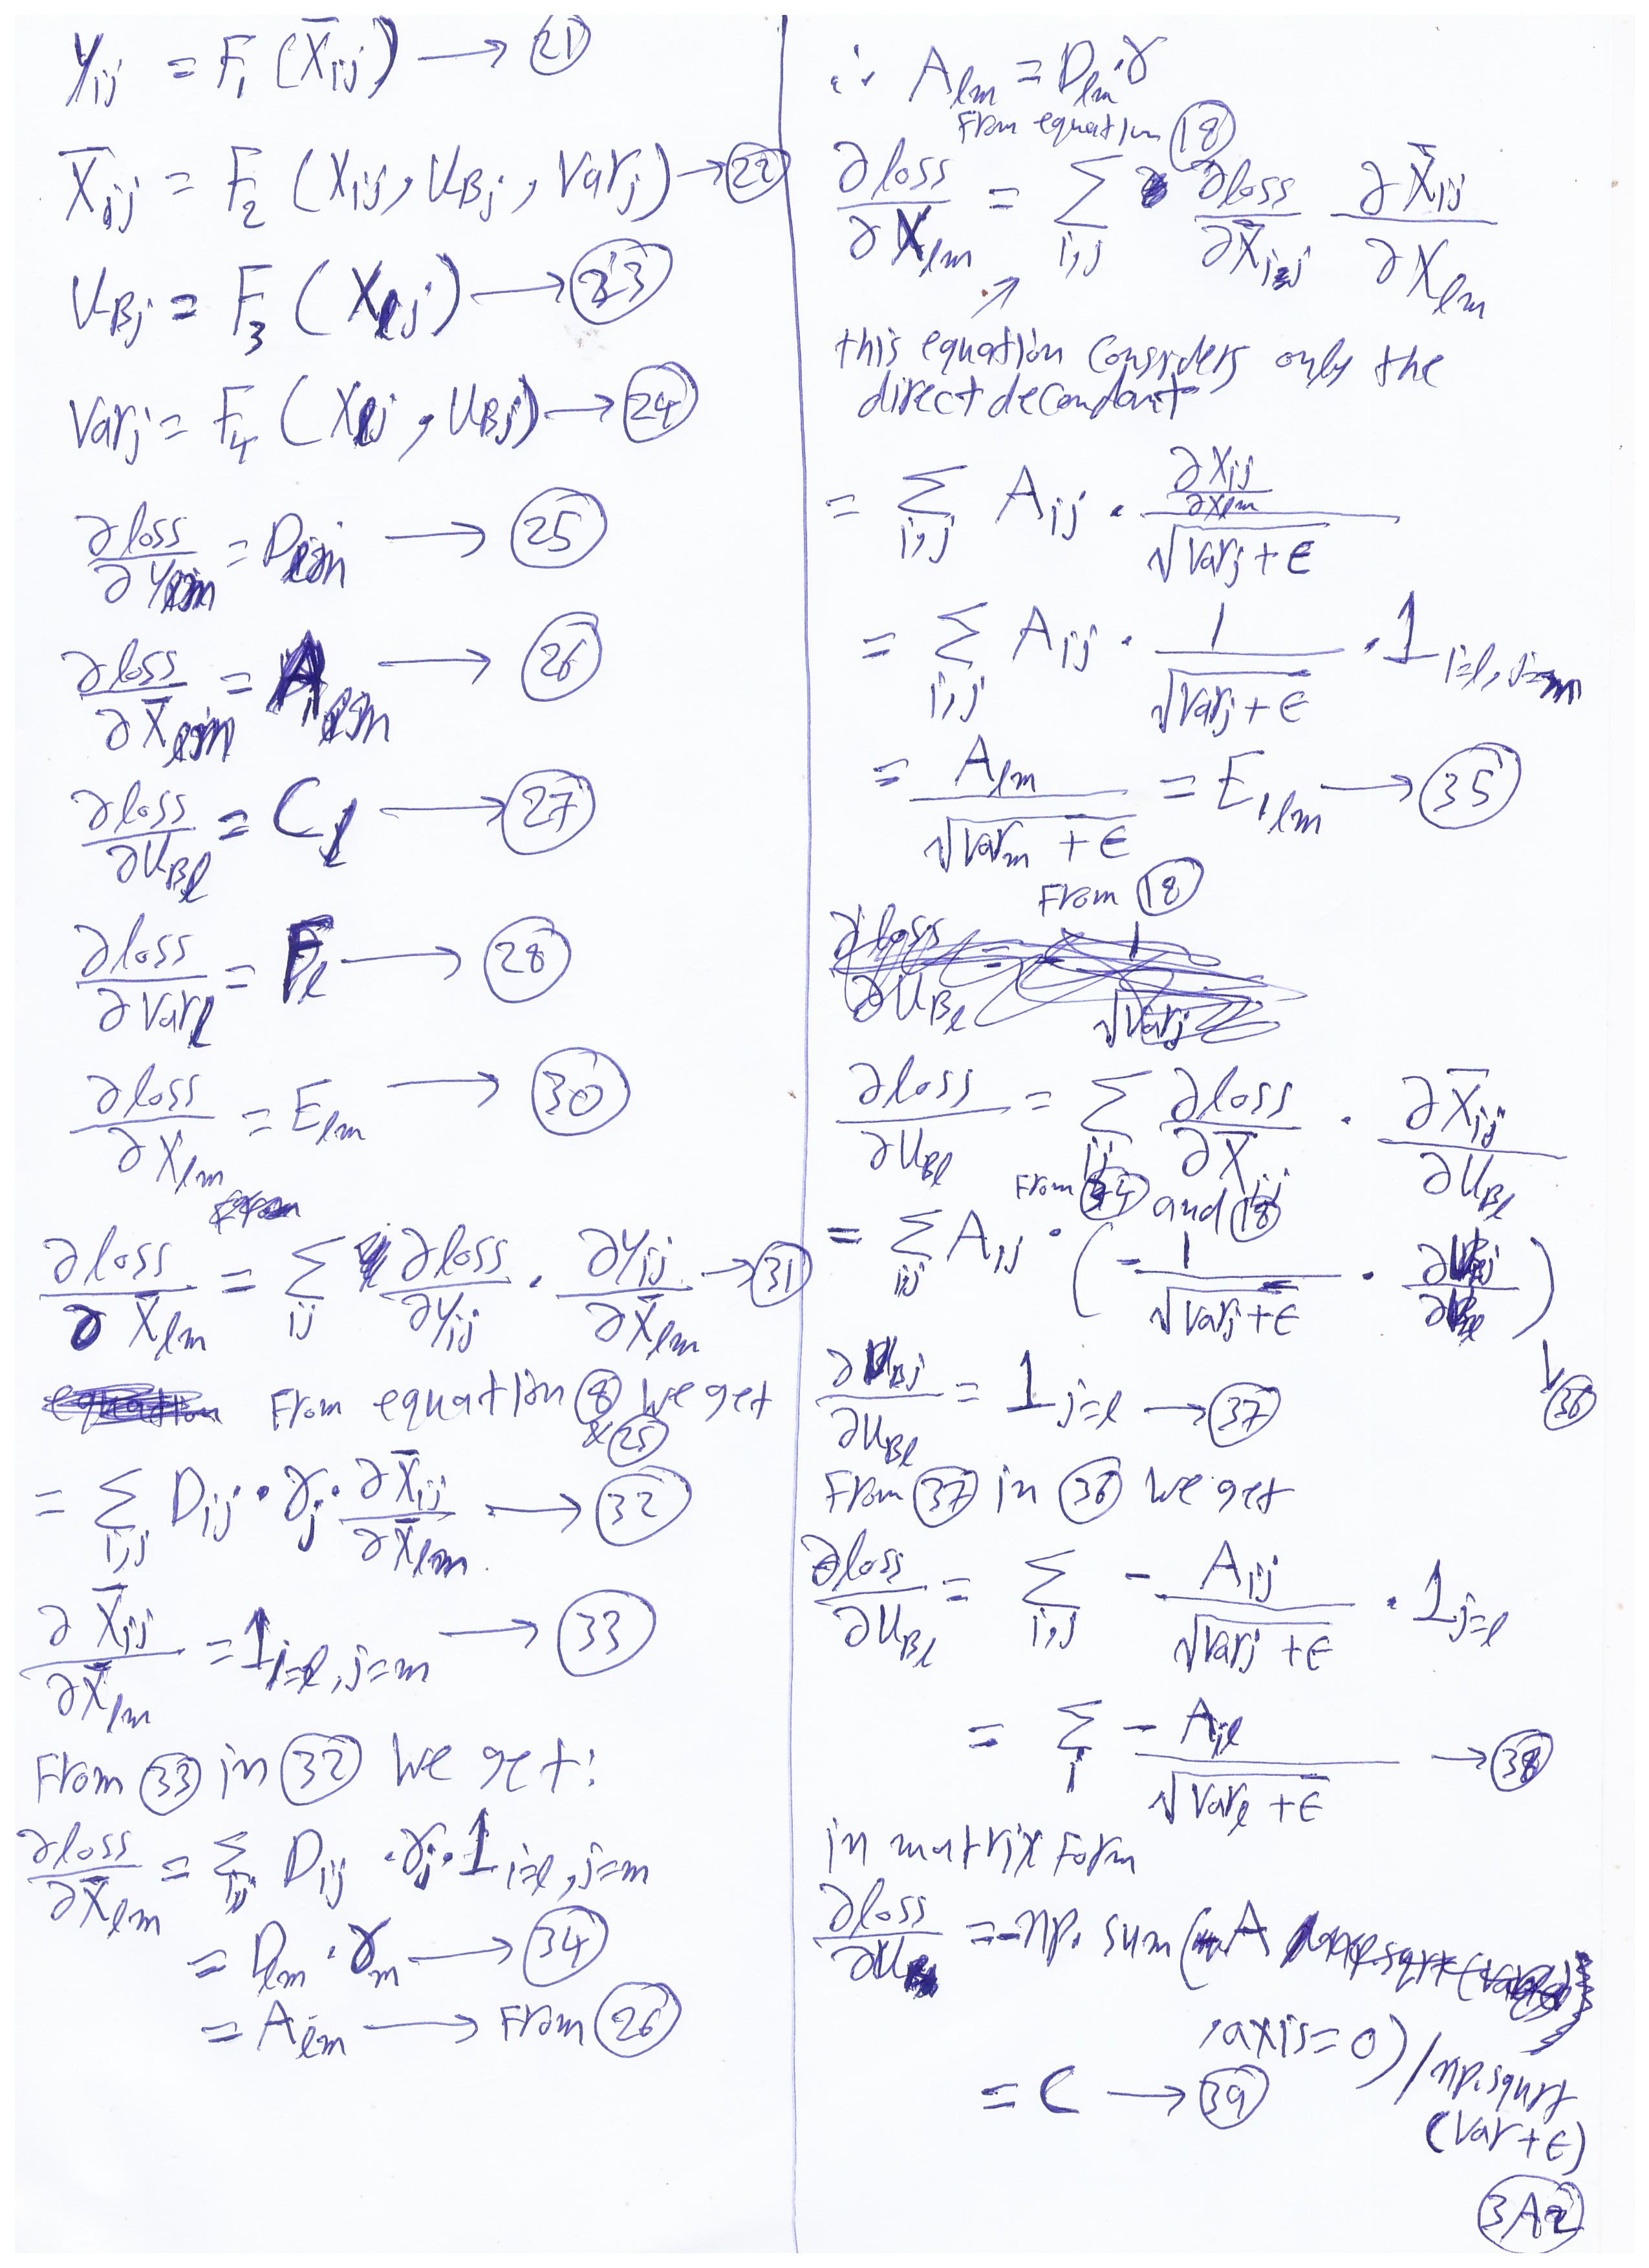 y_ij = F_1 (X̄_ij) → (21)
X̄_ij = F_2 (X_ij, U_Bj, Var_j) → (22)
U_Bj = F_3 (X_lj) → (23)
Var_j = F_4 (X_lj, U_Bj) → (24)
∂loss/∂y_lm = D_lm → (25)
∂loss/∂X̄_lm = A_lm → (26)
∂loss/∂U_Bl = C_l → (27)
∂loss/∂Var_l = F_l → (28)
∂loss/∂X_lm = E_lm → (30)
∂loss/∂X̄_lm = Σ_ij ∂loss/∂y_ij · ∂y_ij/∂X̄_lm → (31)
From equation (8) we get
& (25)
= Σ_i,j D_ij · γ_j · ∂X̄_ij/∂X̄_lm → (32)
∂X̄_ij/∂X̄_lm = 1_i=l,j=m → (33)
From (33) in (32) we get:
∂loss/∂X̄_lm = Σ_ij D_ij · γ_j · 1_i=l,j=m
= D_lm · γ_m → (34)
= A_lm → From (26)
∴ A_lm = D_lm · γ
From equation (18)
∂loss/∂X_lm = Σ_i,j ∂loss/∂X̄_ij ∂X̄_ij/∂X_lm
this equation considers only the
direct decondant
= Σ_i,j A_ij · (∂X_ij/∂X_lm)/√(Var_j + ϵ)
= Σ_i,j A_ij · 1/√(Var_j + ϵ) · 1_i=l,j=m
= A_lm/√(Var_m + ϵ) = E_1lm → (35)
From (18)
∂loss/∂U_Bl = Σ_ij ∂loss/∂X̄_ij · ∂X̄_ij/∂U_Bl
From (34) and (18)
= Σ_ij A_ij · (-1/√(Var_j + ϵ) · ∂U_Bj/∂U_Bl)
→ (36)
∂U_Bj/∂U_Bl = 1_j=l → (37)
From (37) in (36) we get
∂loss/∂U_Bl = Σ_i,j - A_ij/√(Var_j + ϵ) · 1_j=l
= Σ_i - A_il/√(Var_l + ϵ) → (38)
in matrix form
∂loss/∂U_B = -np.sum(A
,axis=0)/np.squrt
(Var+ϵ)
= C → (39)
(3A2)